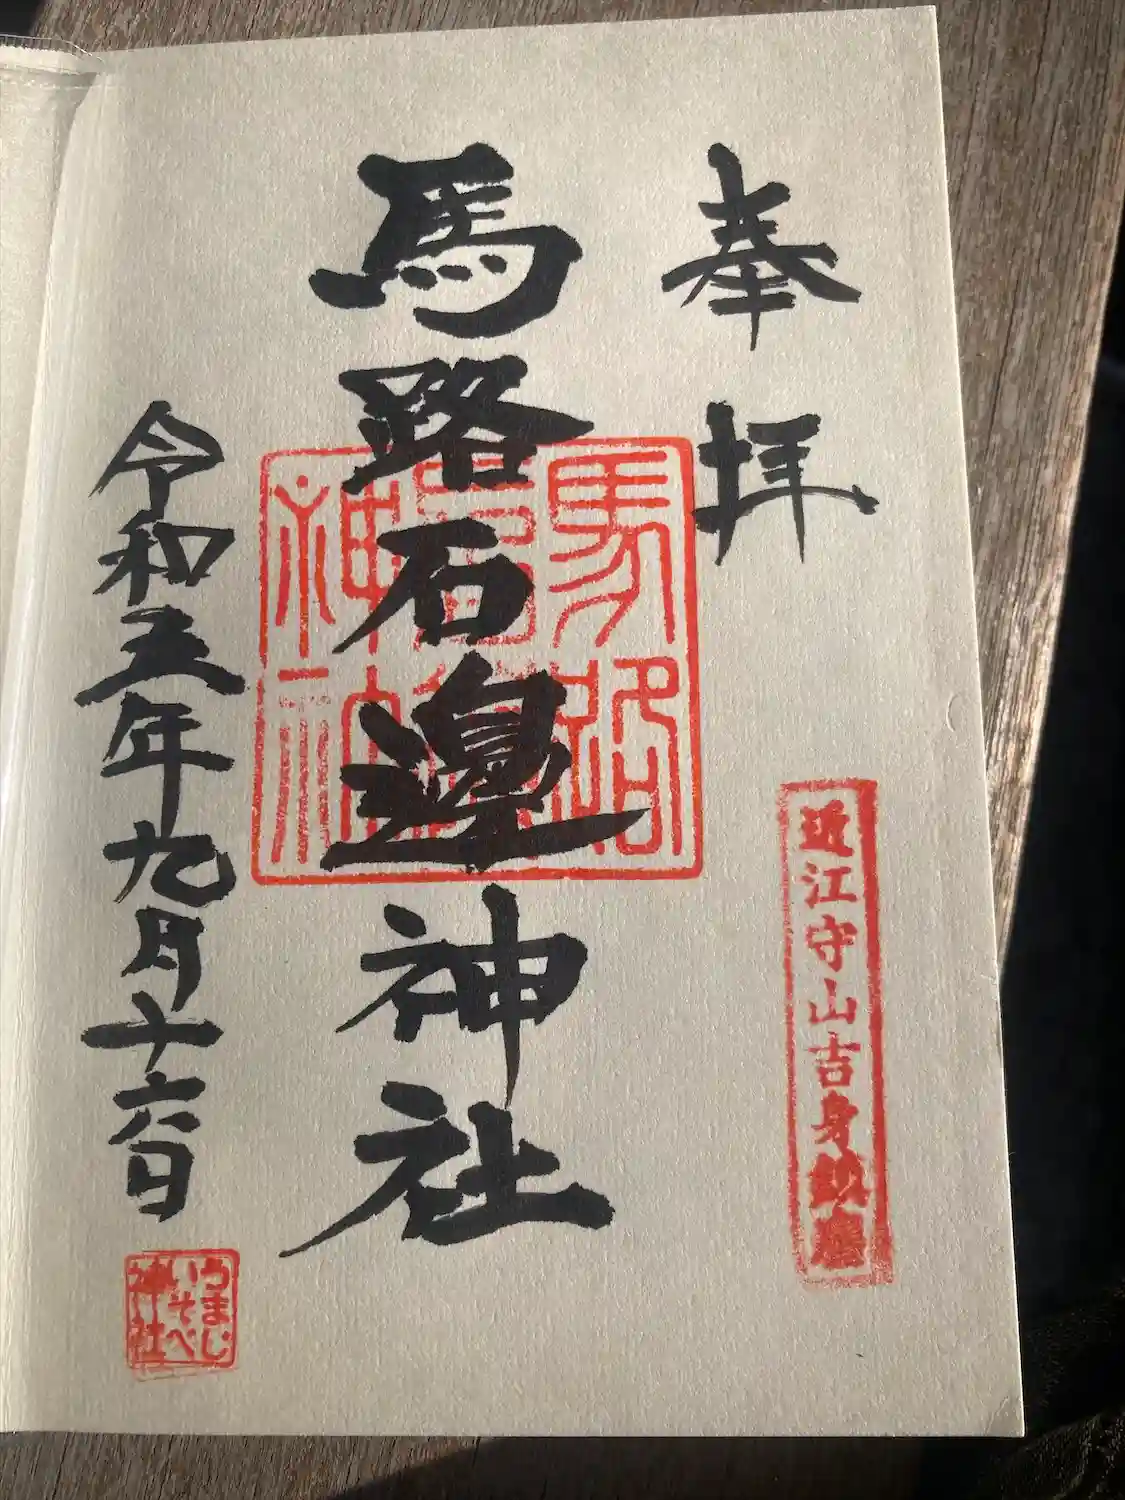 奉拝
近江守山吉身鎮座
馬路石邊神社
馬路石邊神社
令和五年九月十六日
うまじ
いそべ
神社